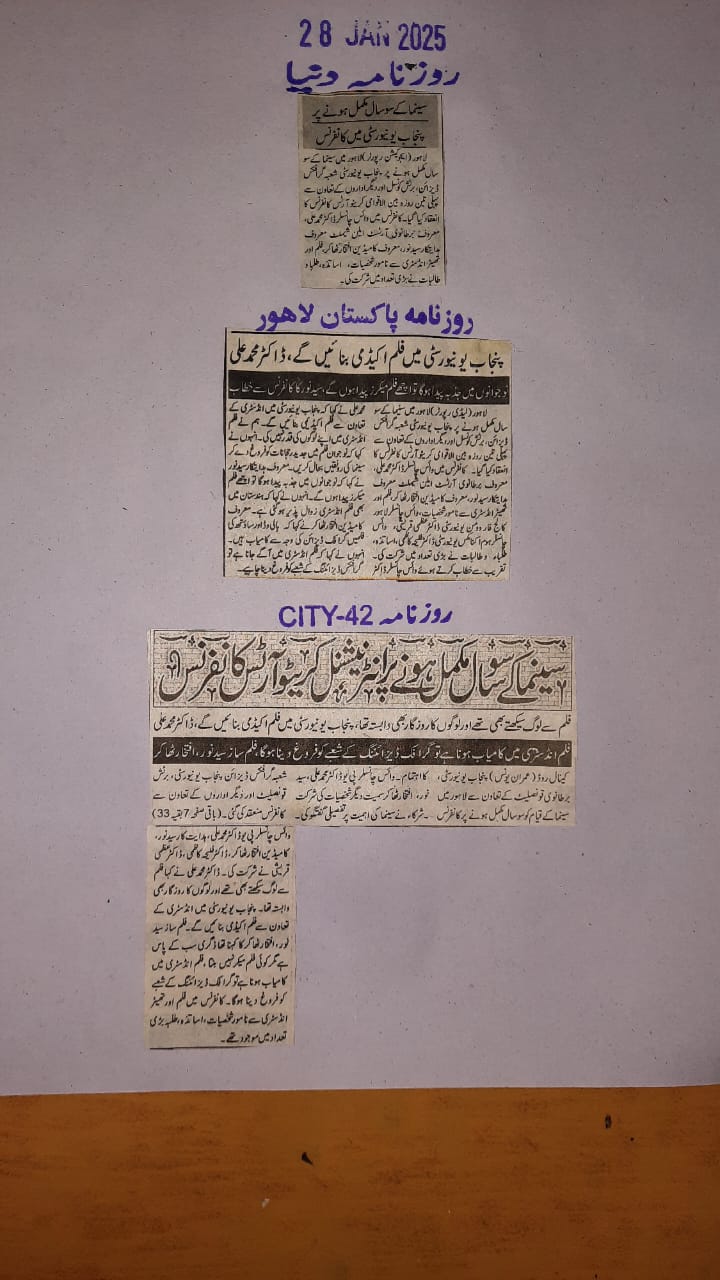 28 JAN 2025
روزنامہ دنیا
سینما کے سو سال مکمل ہونے پر
پنجاب یونیورسٹی میں کانفرنس
لاہور (ایجوکیشن رپورٹر) لاہور میں سینما کے سو
سال مکمل ہونے پر پنجاب یونیورسٹی شعبہ گرافکس
ڈیزائن، برٹش کونسل اور دیگر اداروں کے تعاون سے
پہلی تین روزہ بین الاقوامی کریٹو آرٹس کانفرنس کا
انعقاد کیا گیا۔ کانفرنس میں وائس چانسلر ڈاکٹر محمد علی،
معروف برطانوی آرٹسٹ ایلن شیملٹ معروف
ہدایتکار سید نور، معروف کامیڈین افتخار ٹھاکر، فلم اور
تھیٹر انڈسٹری سے نامور شخصیات، اساتذہ، طلباء و
طالبات نے بڑی تعداد میں شرکت کی۔
روزنامہ پاکستان لاہور
پنجاب یونیورسٹی میں فلم اکیڈمی بنائیں گے، ڈاکٹر محمد علی
نوجوانوں میں جذبہ پیدا ہوگا تو اچھے فلم میکرز پیدا ہوں گے، سید نور کا کانفرنس سے خطاب
لاہور (لیڈی رپورٹر) لاہور میں سینما کے سو
سال مکمل ہونے پر پنجاب یونیورسٹی شعبہ گرافکس
ڈیزائن، برٹش کونسل اور دیگر اداروں کے تعاون سے
پہلی تین روزہ بین الاقوامی کریٹو آرٹس کانفرنس کا
انعقاد کیا گیا۔ کانفرنس میں وائس چانسلر ڈاکٹر محمد علی،
معروف برطانوی آرٹسٹ ایلن شیملٹ معروف
ہدایتکار سید نور، معروف کامیڈین افتخار ٹھاکر، فلم اور
تھیٹر انڈسٹری سے نامور شخصیات، وائس چانسلر لاہور
کالج فار ویمن یونیورسٹی ڈاکٹر عظمیٰ قریشی، وائس
چانسلر ہوم اکنامکس یونیورسٹی ڈاکٹر فلیحہ کاظمی، اساتذہ،
طلباء و طالبات نے بڑی تعداد میں شرکت کی۔
تقریب سے خطاب کرتے ہوئے وائس چانسلر ڈاکٹر
محمد علی نے کہا کہ پنجاب یونیورسٹی میں انڈسٹری کے
تعاون سے فلم اکیڈیمی بنائیں گے۔ ہم نے فلم
انڈسٹری میں اپنے لوگوں کی قدر نہیں کی۔ انہوں نے
کہا کہ نوجوان فلم میں جدید رجحانات کو فروغ دے کر
سینما کی رونقیں بحال کریں۔ معروف ہدایتکار سید نور
نے کہا کہ نوجوانوں میں جذبہ پیدا ہوگا تو اچھے فلم
میکرز پیدا ہوں گے۔ انہوں نے کہا کہ ہندستان میں
بھی فلم انڈسٹری زوال پذیر ہو گئی ہے۔ معروف
کامیڈین افتخار ٹھاکر نے کہا کہ ہالی وڈ اور ساؤتھ کی
فلمیں گرافک ڈیزائن کی وجہ سے کامیاب ہیں۔
انہوں نے کہا کہ فلم انڈسٹری میں آگے جانا ہے تو
گرافکس ڈیزائننگ کے شعبے کو فروغ دینا چاہیے۔
روزنامہ CITY-42
سینما کے سو سال مکمل ہونے پر انٹرنیشنل کریٹو آرٹس کانفرنس
فلم سے لوگ سیکھتے بھی تھے اور لوگوں کا روزگار بھی وابستہ تھا، پنجاب یونیورسٹی میں فلم اکیڈمی بنائیں گے، ڈاکٹر محمد علی
فلم انڈسٹری میں کامیاب ہونا ہے تو گرافک ڈیزائننگ کے شعبے کو فروغ دینا ہوگا، فلم ساز سید نور، افتخار ٹھاکر
کینال روڈ (عمران یونس) پنجاب یونیورسٹی،
برطانوی قونصلیٹ کے تعاون سے لاہور میں
سینما کے قیام کو سو سال مکمل ہونے پر کانفرنس
کا اہتمام۔ وائس چانسلر پی یو ڈاکٹر محمد علی، سید
نور، افتخار ٹھاکر سمیت دیگر شخصیات کی شرکت
۔ شرکاء نے سینما کی اہمیت پر تفصیلی گفتگو کی۔
شعبہ گرافکس ڈیزائن پنجاب یونیورسٹی، برٹش
قونصلیٹ اور دیگر اداروں کے تعاون سے
کانفرنس منعقد کی گئی۔ (باقی صفحہ 7 بقیہ 33)
وائس چانسلر پی یو ڈاکٹر محمد علی، ہدایت کار سید نور،
کامیڈین افتخار ٹھاکر، ڈاکٹر فلیحہ کاظمی، ڈاکٹر عظمیٰ
قریشی نے شرکت کی۔ ڈاکٹر محمد علی نے کہا فلم
سے لوگ سیکھتے بھی تھے اور لوگوں کا روزگار بھی
وابستہ تھا۔ پنجاب یونیورسٹی میں انڈسٹری کے
تعاون سے فلم اکیڈمی بنائیں گے۔ فلم ساز سید
نور، افتخار ٹھاکر کا کہنا تھا ڈگری سب کے پاس
ہے مگر کوئی فلم میکر نہیں بنتا، فلم انڈسٹری میں
کامیاب ہونا ہے تو گرافک ڈیزائننگ کے شعبے
کو فروغ دینا ہوگا۔ کانفرنس میں فلم اور تھیٹر
انڈسٹری سے نامور شخصیات، اساتذہ، طلبہ بڑی
تعداد میں موجود تھے۔